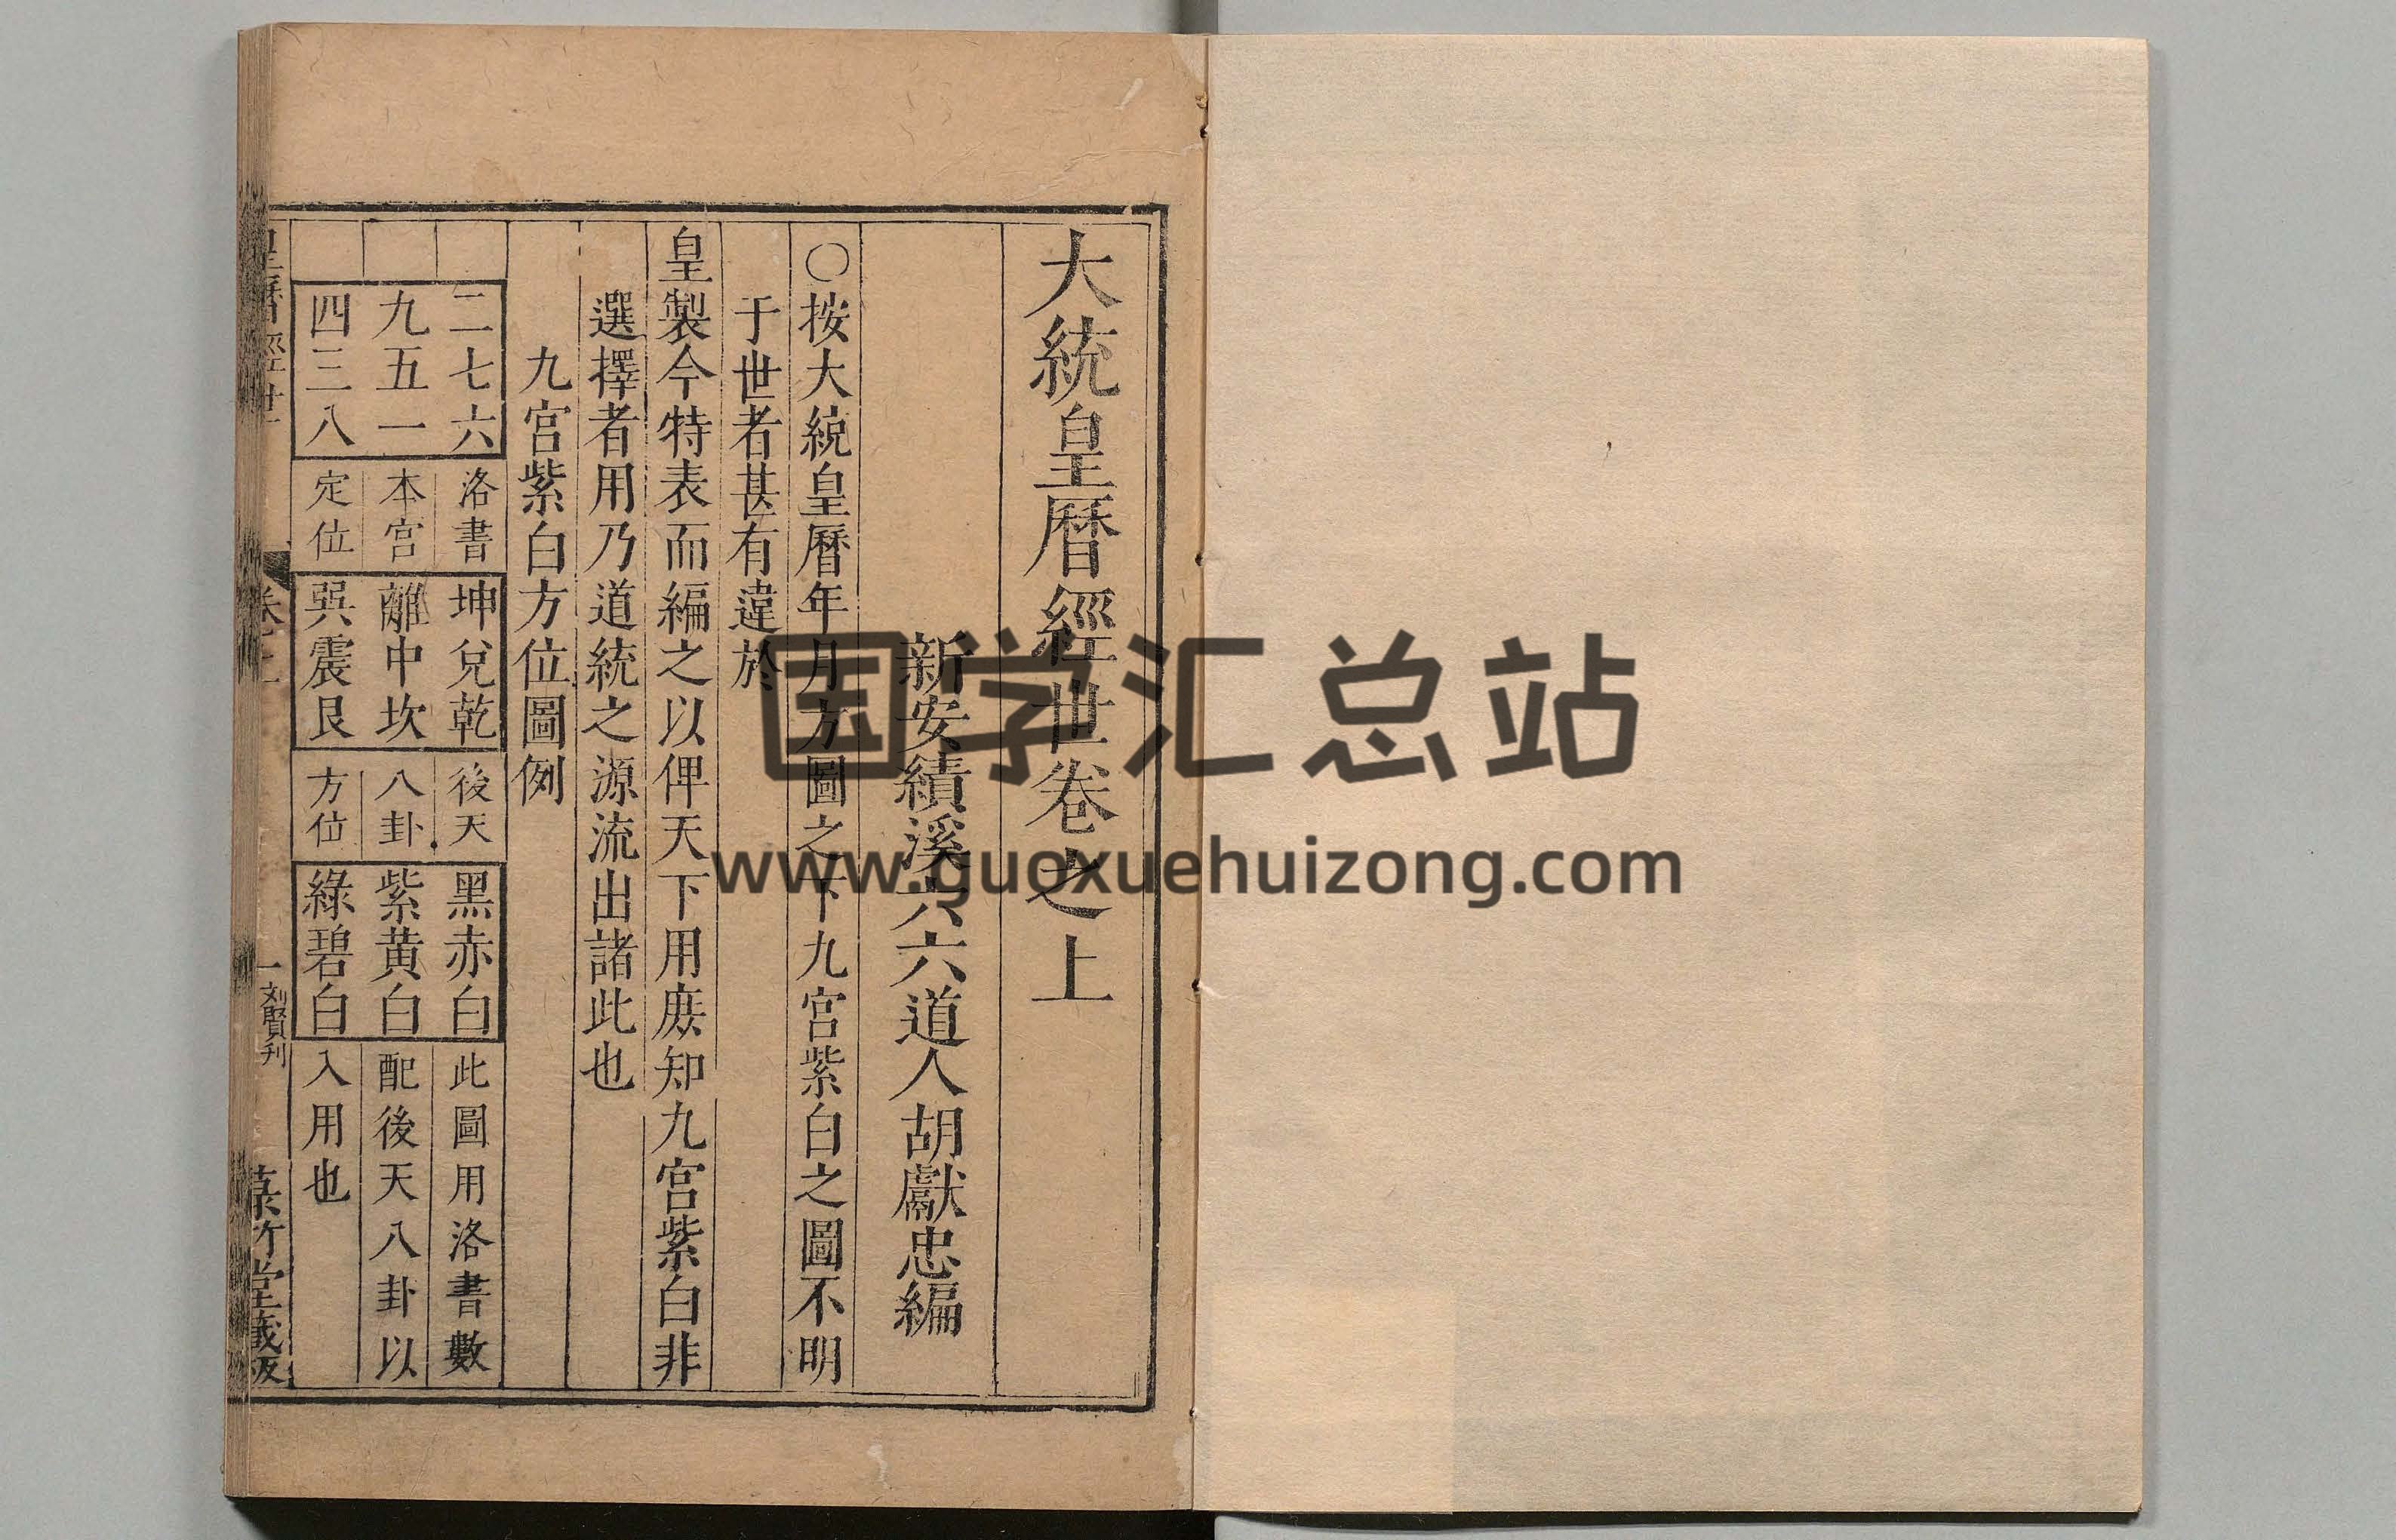 大統皇曆經世卷之上
新安績溪六六道人胡獻忠編
○按大統皇曆年月方圖之下九宮紫白之圖不明
于世者甚有違於
皇製今特表而編之以俾天下用庻知九宮紫白非
選擇者用乃道統之源流出諸此也
九宮紫白方位圖例
二七六 洛書 坤兌乾 後天 黑赤白 此圖用洛書數
九五一 本宮 離中坎 八卦 紫黃白 配後天八卦以
四三八 定位 巽震艮 方位 綠碧白 入用也
皇曆經世 卷之上 一 刘賢刊 菉竹堂藏板
国学汇总站
www.guoxuehuizong.com